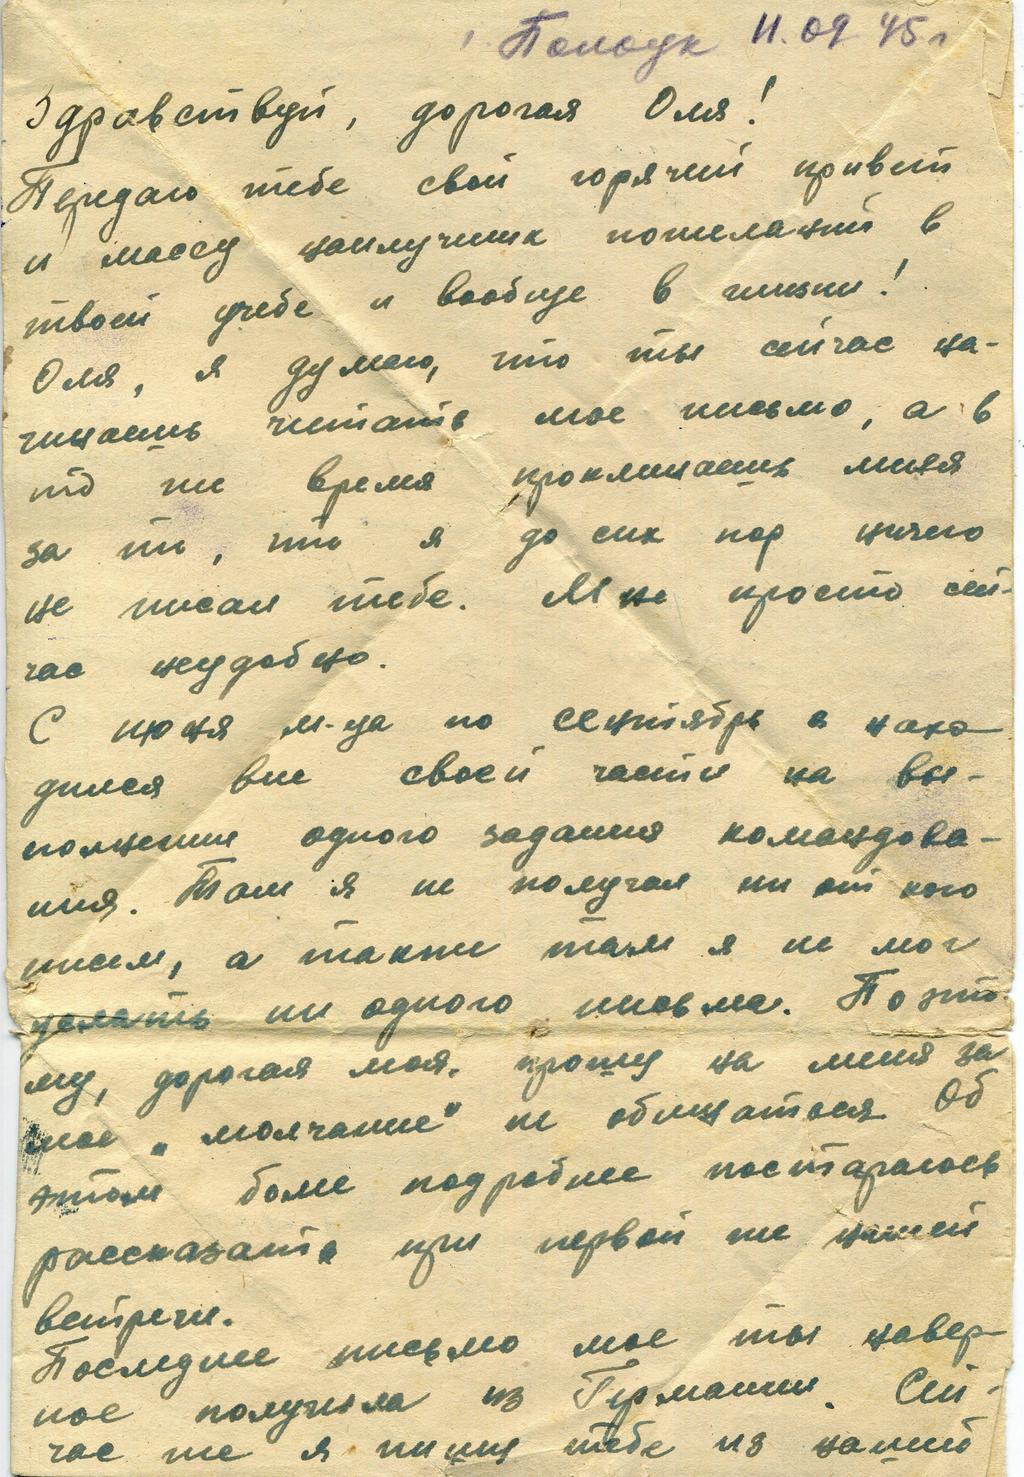 Полоцк 11.09.45 г
Здравствуй, дорогая Оля!
Передаю тебе свой горячий привет
и массу наилучших пожеланий в
твоей учебе и вообще в жизни!
Оля, я думаю, что ты сейчас на-
чинаешь читать мое письмо, а в
то же время проклинаешь меня
за то, что я до сих пор ничего
не писал тебе. Мне просто сей-
час неудобно.
С июня м-ца по сентябрь я нахо-
дился вне своей части на вы-
полнении одного задания командова-
ния. Там я не получал ни от кого
писем, а также там я не мог
ни одного письма. Поэто-
му, дорогая моя, прошу на меня за
мое „молчание" не обижаться. Об
этом более подробнее постараюсь
рассказать при первой же нашей
встрече.
Последнее письмо мое ты навер-
ное получила из Германии. Сей-
час же я пишу тебе из нашей